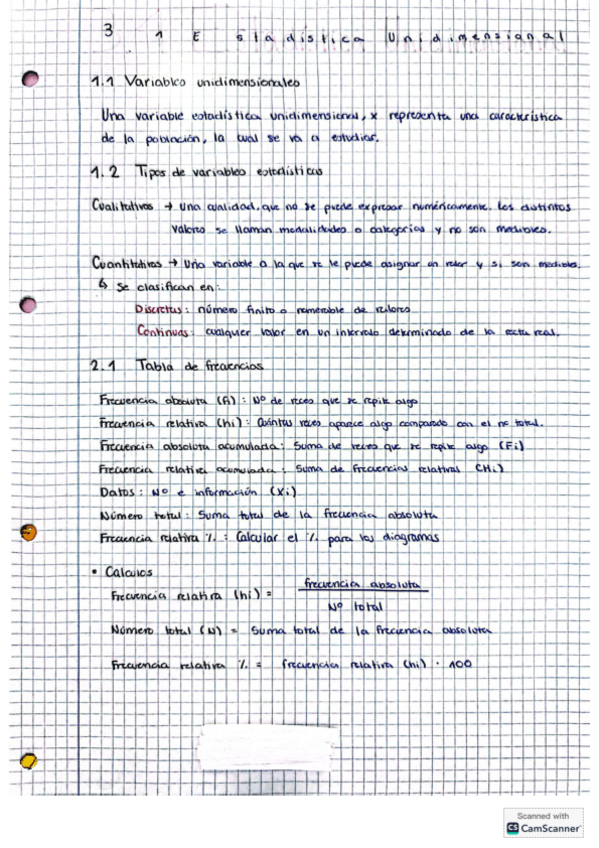 3 1 Estadística Unidimensional
1.1 Variables unidimensionales
Una variable estadística unidimensional, x representa una característica
de la población, la cual se va a estudiar.
1.2 Tipos de variables estadísticas
Cualitativas → Una cualidad, que no se puede expresar numéricamente. Los distintos
valores se llaman modalidades o categorías y no son medibles.
Cuantitativas → Una variable a la que se le puede asignar un valor y si son medibles.
↳ Se clasifican en:
Discretas: número finito o numerable de valores
Continuas: cualquier valor en un intervalo determinado de la recta real.
2.1 Tabla de frecuencias
Frecuencia absoluta (fi): Nº de veces que se repite algo
Frecuencia relativa (hi): Cuántas veces aparece algo comparado con el nº total.
Frecuencia absoluta acumulada: Suma de veces que se repite algo (Fi)
Frecuencia relativa acumulada: Suma de frecuencias relativas (Hi)
Datos: Nº e información (Xi)
Número total: Suma total de la frecuencia absoluta
Frecuencia relativa %: Calcular el % para los diagramas
• Calculos
Frecuencia relativa (hi) = frecuencia absoluta
Nº total
Número total (N) = Suma total de la frecuencia absoluta
Frecuencia relativa % = frecuencia relativa (hi) · 100
Scanned with
CS CamScanner